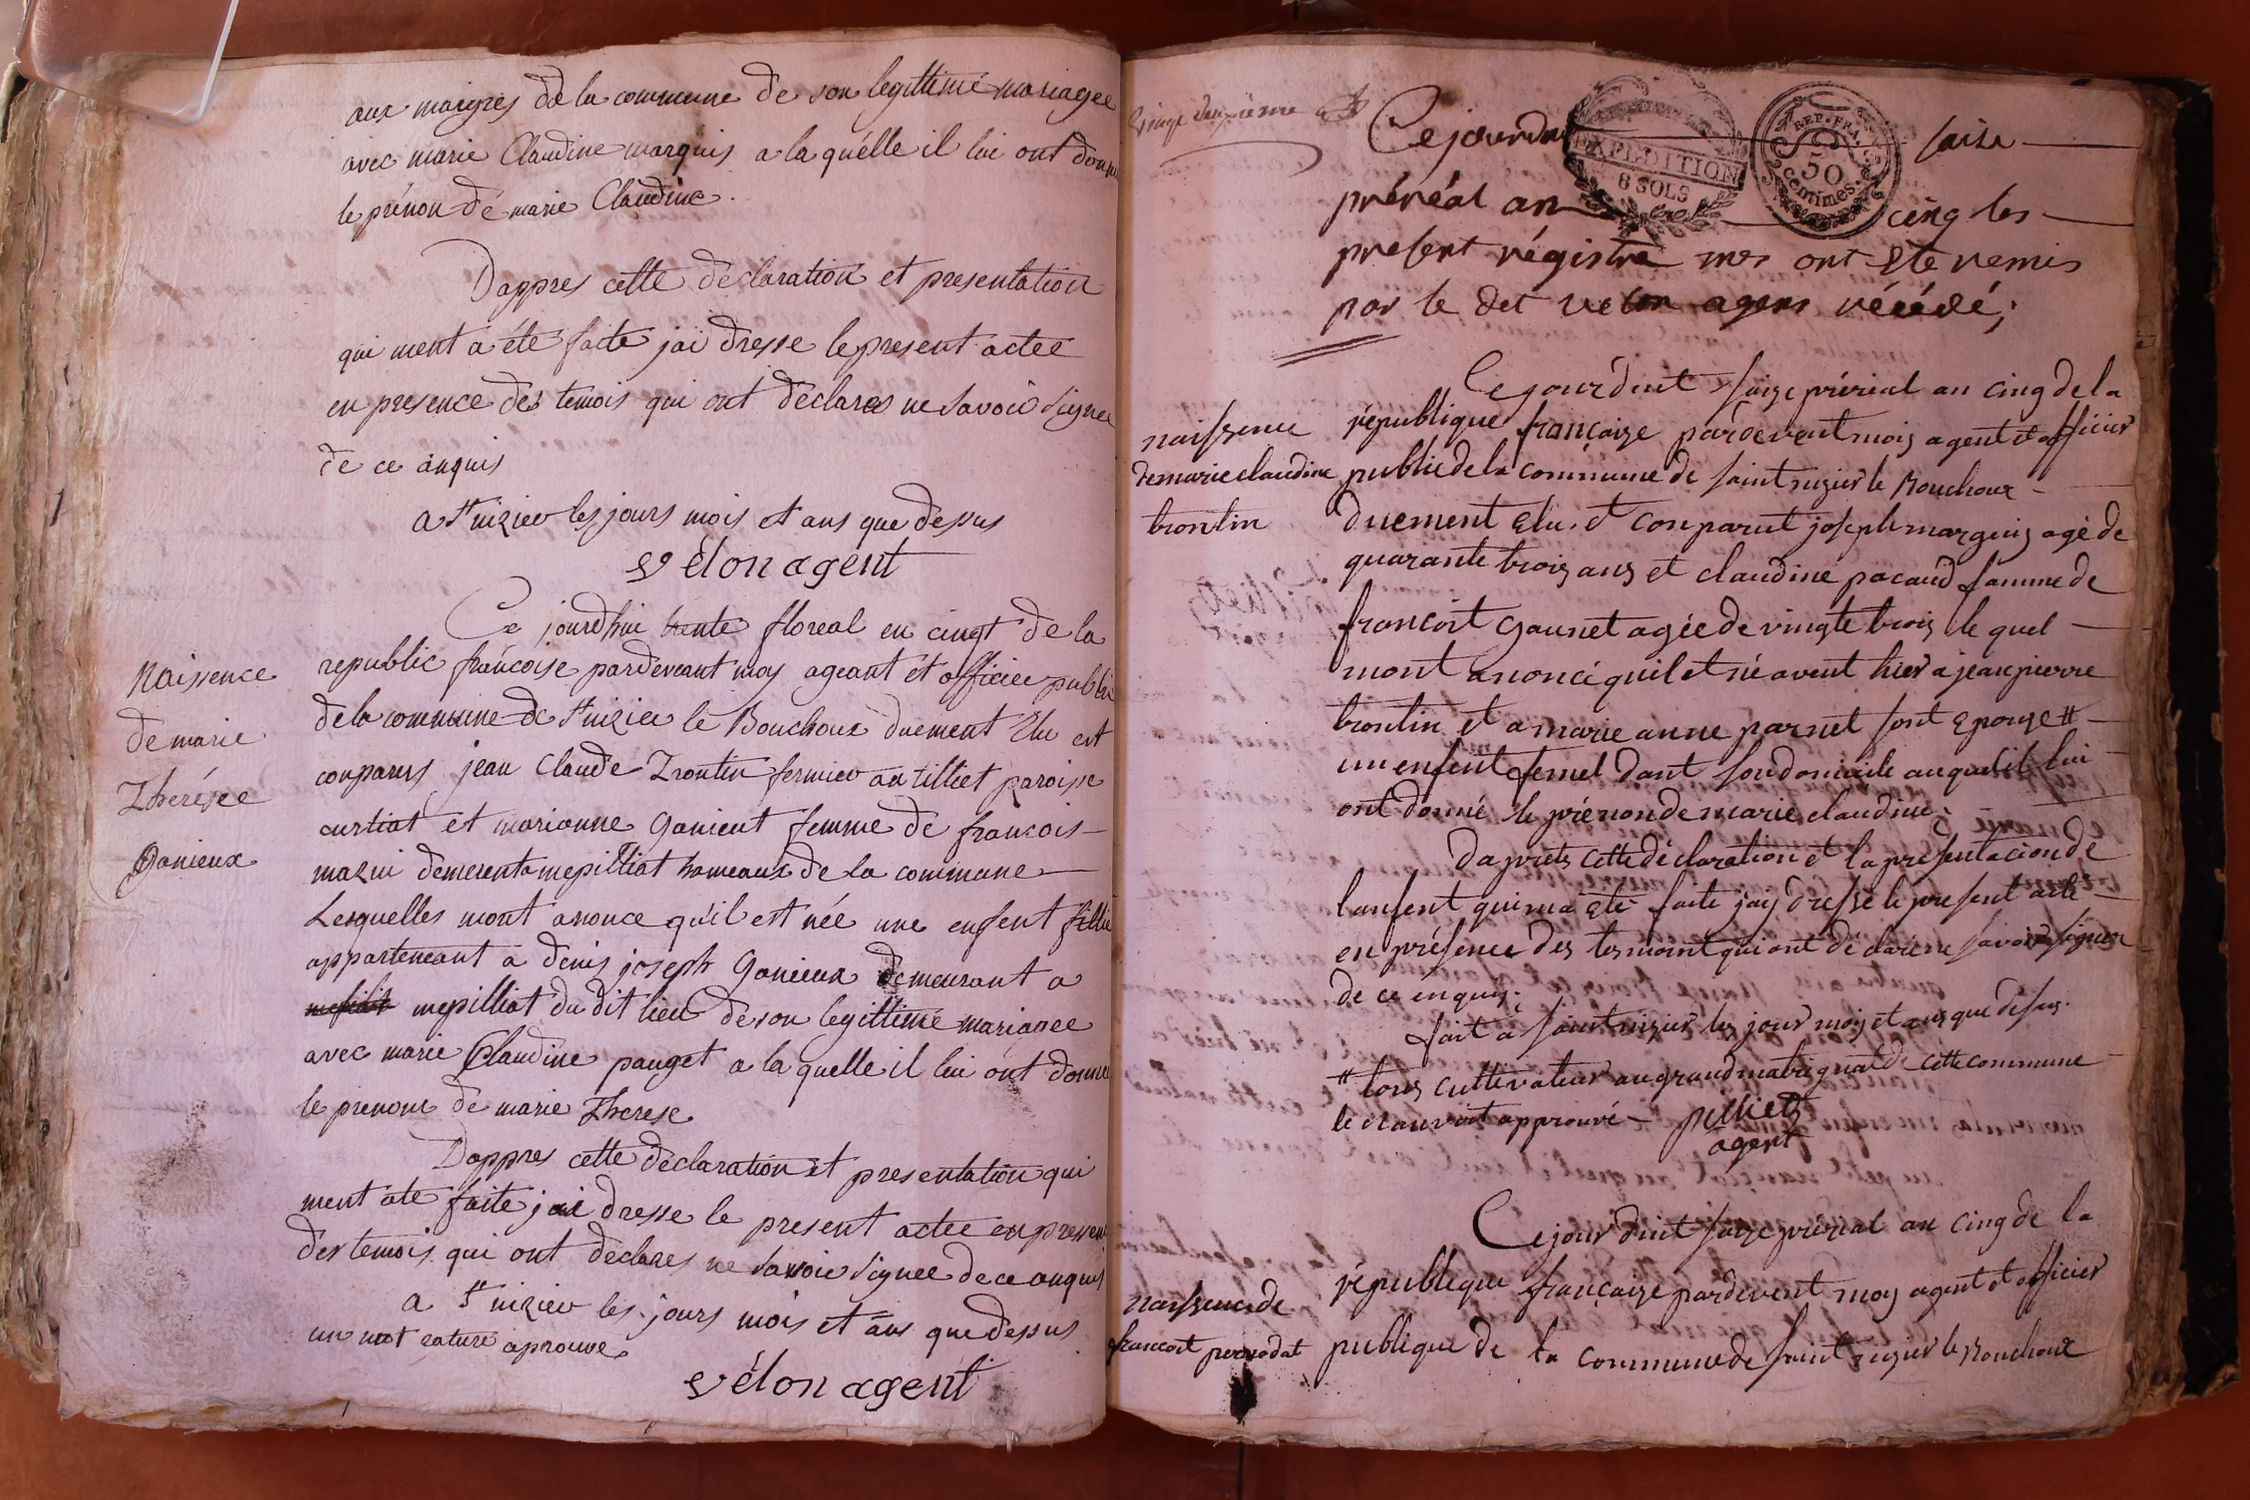 aux maigres de la commune de son legittime mariagee
avec marie Claudine marquis a la quélle il lui ont donne
le prénon dé marie Claudine.
Dappres cette déclaration et presentation
qui ment a été faite jai dresse le present actee
en presence des temois qui ont declares ne savoir signee
de ce anquis
a St nizier les jours mois et ans que dessus
vélon agent
Naissence
de marie
Therésee
Ganieux
Ce jourdhui trente floreal en cinqt de la
republic françoise pardeveant moy ageant et officiee public
de la commune de St nizier le Bouchoux duement Elu est
comparus jean Claude Trontin fermier au tilliet paroisse
curtiat et marianne Ganieut femme de francois
mazui demeurenta mepilliat hameaux de la commune
Lesquelles mont anonce qu'il est née une enfent fille
appartencant a denis joseph Ganieux demeurant a
mepilliat du dit lieu de son legittime mariagee
avec marie Claudine pauget a la quelle il lui ont donne
le prenom de marie Therese
Dappres cette déclaration et presentation qui
ment ate faite jai dresse le present actee en presence
des temois qui ont declares ne savoir signee de ce anquis
a St nizier les jours mois et ans que dessus
un mot raturé aprouve
vélon agent
vingt deuxieme
Ce jourdui saize
EXPEDITION 8 SOLS
REP. FRA. 50 centimes
préréal an cinq les
present régistre mes ont ete remis
par le det velon agens
naissence
de marie claudine
trontin
Ce jourduit saize prérial an cinq de la
république françaize pardevent moiy agent et officier
public de la commune de saint nizier le Bouchoux
duement elu et conparut joseph marquis agé de
quarante trois ans et claudine pacaud famme de
francoit gaunet agée de vingte trois le quel
mont anoncé quil et né avent hier a jean pierre
trontin et a marie anne parnet sont epouze #
un enfent femel dant son domicile auquel il lui
ont donné le prénon de marie claudine
Daprets cette déclaration et la presentacion de
lanfent qui ma eté faite jay dressé le present acte
en présence des tesmoint qui ont dé claré ne savoir signer
de ce enquis.
fait a saint nizier les jour moiy et ans que desus.
# tous cultivateur au grand matrignat de cette commune
le ranvoit approuvé
agent
naissence de
francoit
Ce jour duit saize prérial an cinq de la
république françaize pardevent moy agent et officier
publique de la commune de saint nizier le Bouchoux